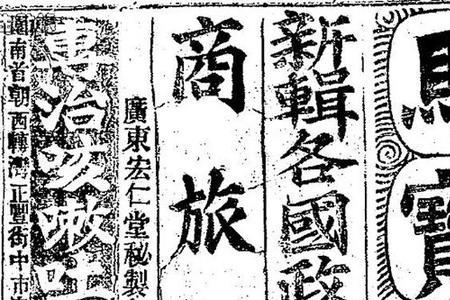 寶
新輯各國政
商旅
廣東宏仁堂秘製
專治咳嗽
南首朝西轉灣正豐街中市